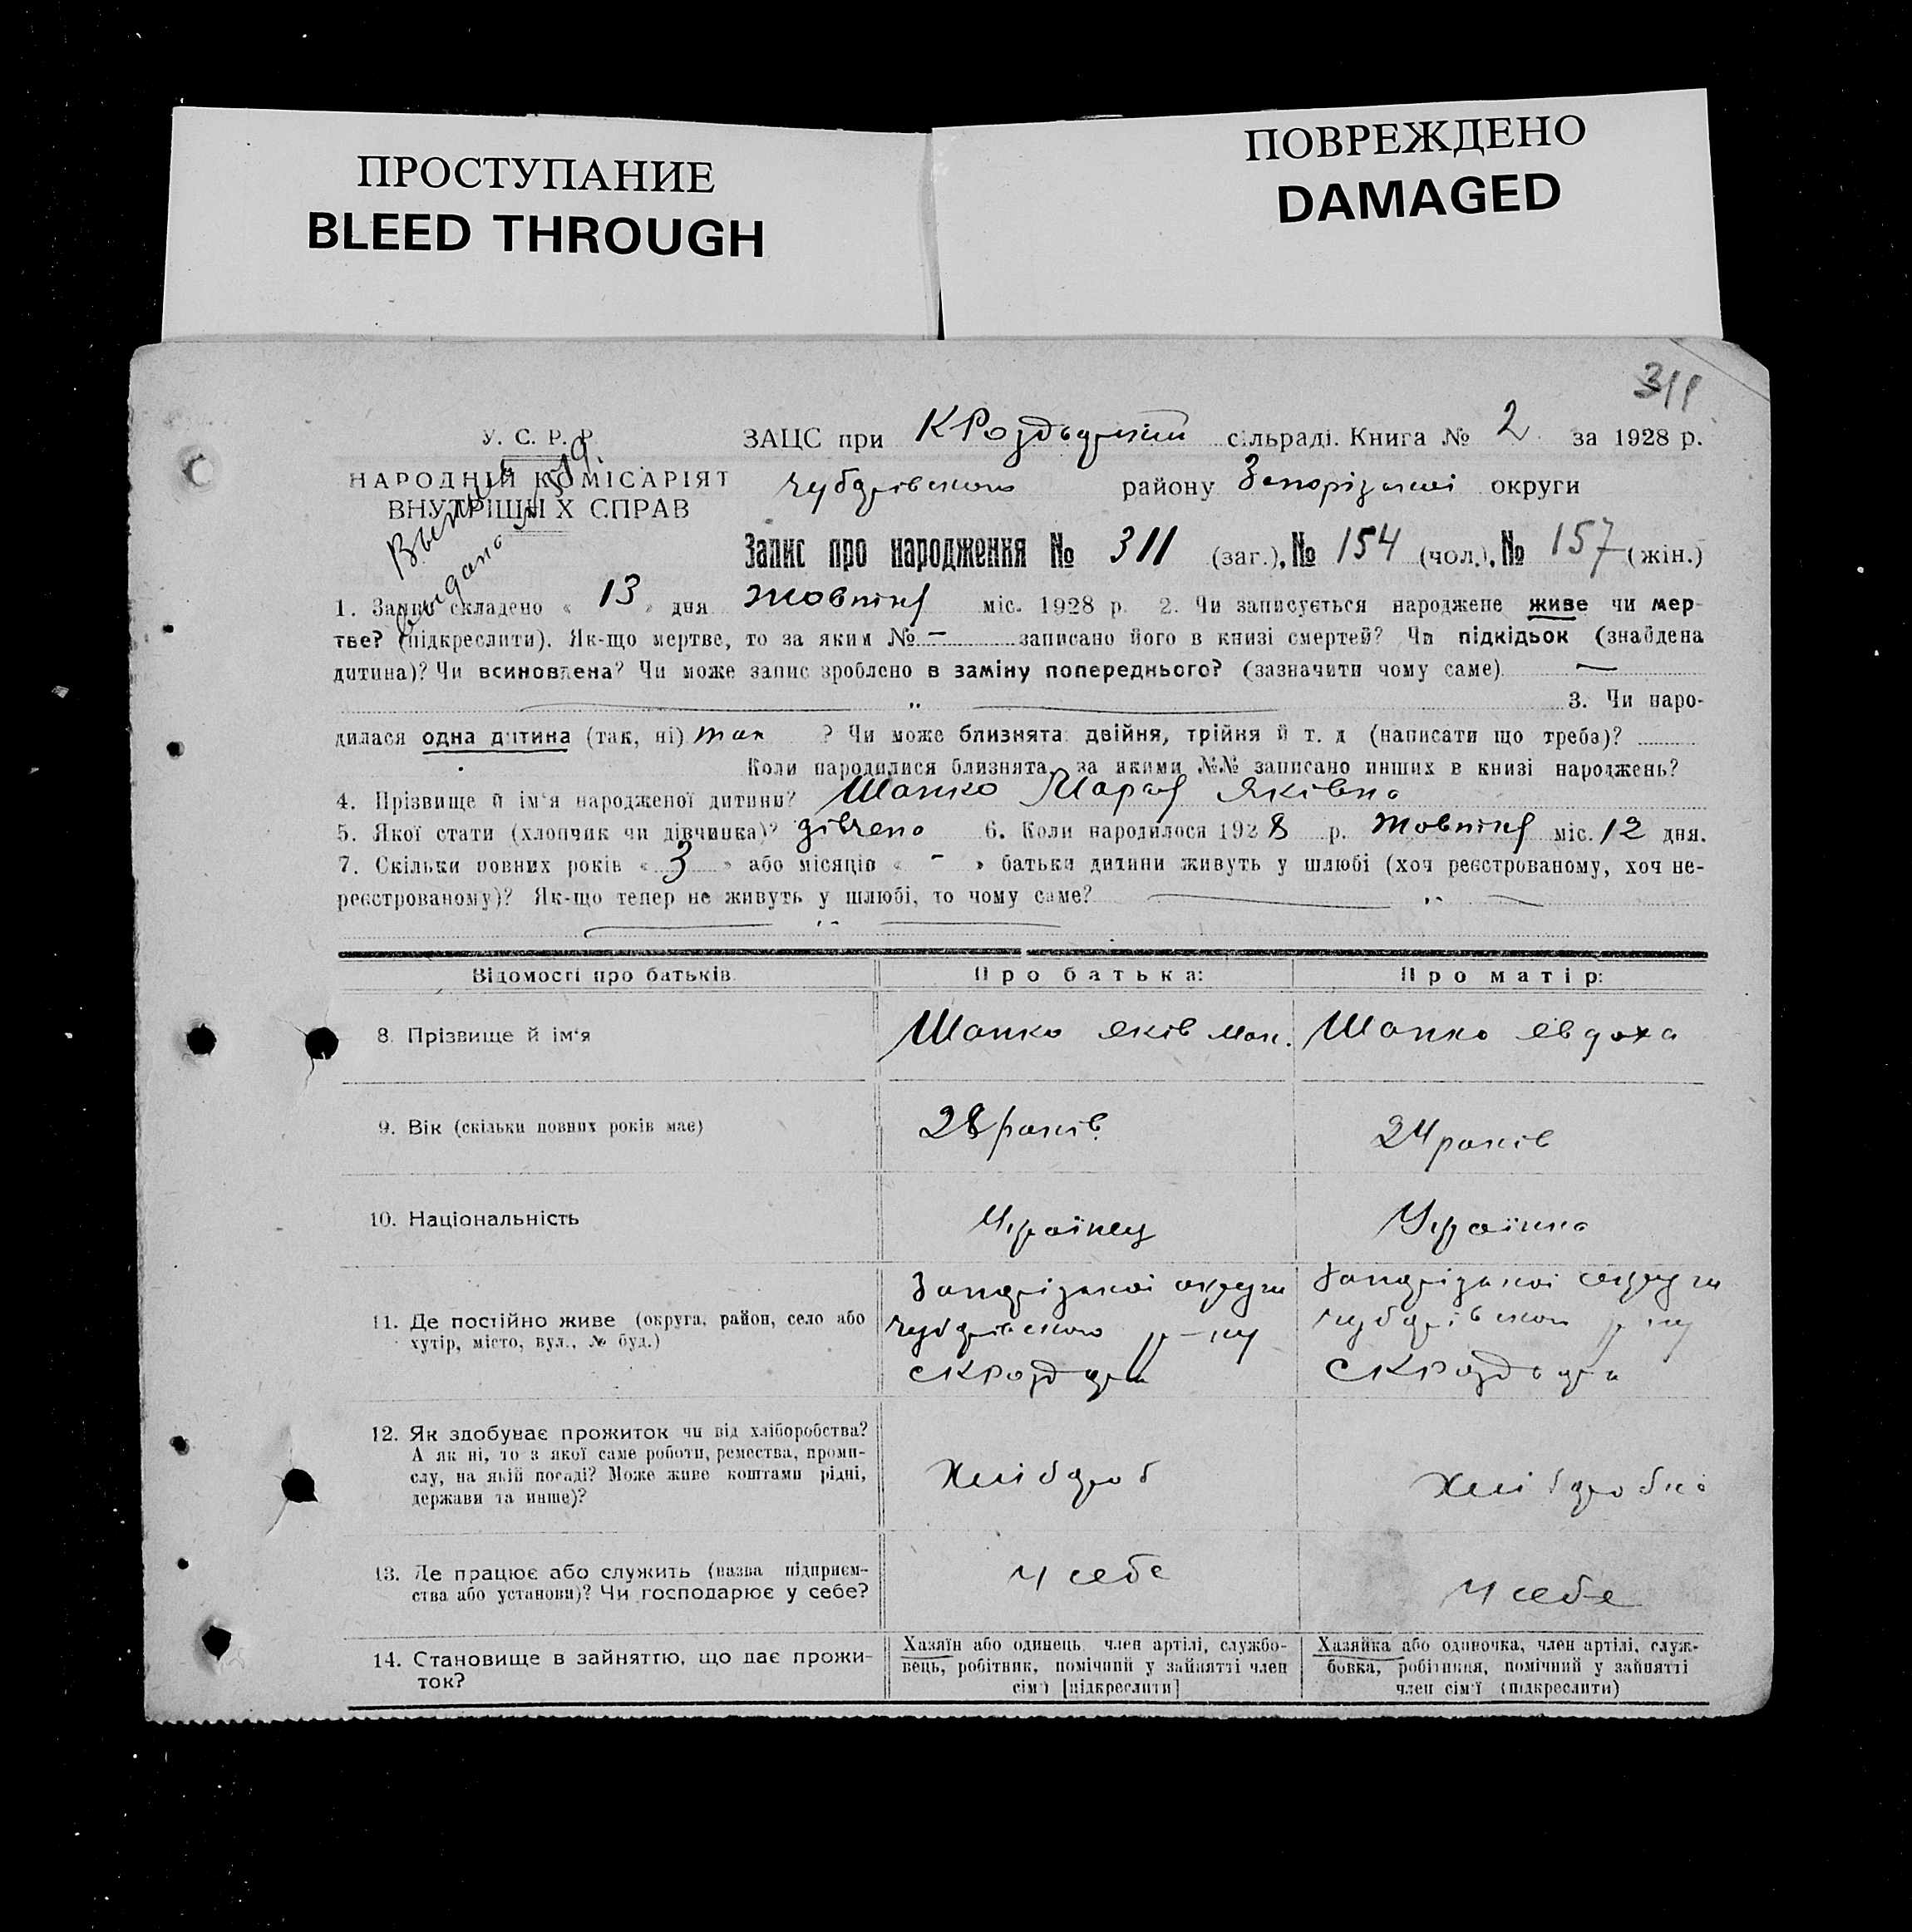 ПРОСТУПАНИЕ
BLEED THROUGH
ПОВРЕЖДЕНО
DAMAGED
311
У. С. Р. Р.
НАРОДНІЙ КОМІСАРІЯТ
ВНУТРІШНІХ СПРАВ
ЗАЦС при сільраді. Книга № 2 за 1928 р.
району Запорізької округи
Запис про народження № 311 (заг.), № 154 (чол.), № 157 (жін.)
1. Запис складено « 13 » дня жовтня міс. 1928 р. 2. Чи записується народжене живе чи мер-
тве? (підкреслити). Як-що мертве, то за яким № — записано його в книзі смертей? Чи підкідьок (знайдена
дитина)? Чи всиновлена? Чи може запис зроблено в заміну попереднього? (зазначити чому саме) —
3. Чи наро-
дилася одна дитина (так, ні) так ? Чи може близнята: двійня, трійня й т. д (написати що треба)?
Коли народилися близнята, за якими №№ записано инших в книзі народжень?
4. Прізвище й ім'я народженої дитини? Шапко Марія Яківна
5. Якої стати (хлопчик чи дівчинка)? дівчена 6. Коли народилося 1928 р. жовтня міс. 12 дня.
7. Скільки повних років « 3 » або місяців « - » батьки дитини живуть у шлюбі (хоч реєстрованому, хоч не-
реєстрованому)? Як-що тепер не живуть у шлюбі, то чому саме?
Відомості про батьків Про батька: Про матір:
8. Прізвище й ім'я Шапко Яків Мак. Шапко Євдоха
9. Вік (скільки повних років має) 28 років 24 років
10. Національність Українец Українка
11. Де постійно живе (округа, район, село або
хутір, місто, вул., № буд.)
Запорізької округи Запорізької округи
р-ну р-ну
12. Як здобуває прожиток чи від хліборобства?
А як ні, то з якої саме роботи, ремества, проми-
слу, на якій посаді? Може живе коштами рідні,
держави та инше)?
Хлібороб Хліборобка
13. Де працює або служить (назва підприєм-
ства або установи)? Чи господарює у себе?
У себе У себе
14. Становище в зайняттю, що дає прожи-
ток?
Хазяїн або одинець, член артілі, службо-
вець, робітник, помічний у зайнятті член
сім'ї [підкреслити]
Хазяйка або одиночка, член артілі, служ-
бовка, робітниця, помічний у зайнятті
член сім'ї (підкреслити)